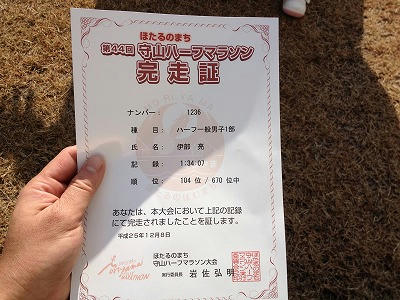 ほたるのまち
第44回 守山ハーフマラソン
完走証
ナンバー： 1236
種 目： ハーフ一般男子1部
氏 名： 伊部 亮
記 録： 1:34:07
順 位： 104 位 / 670 位中
あなたは、本大会において上記の記録
にて完走されましたことを証します。
平成25年12月8日
ほたるのまち
守山ハーフマラソン大会
実行委員長 岩佐弘明